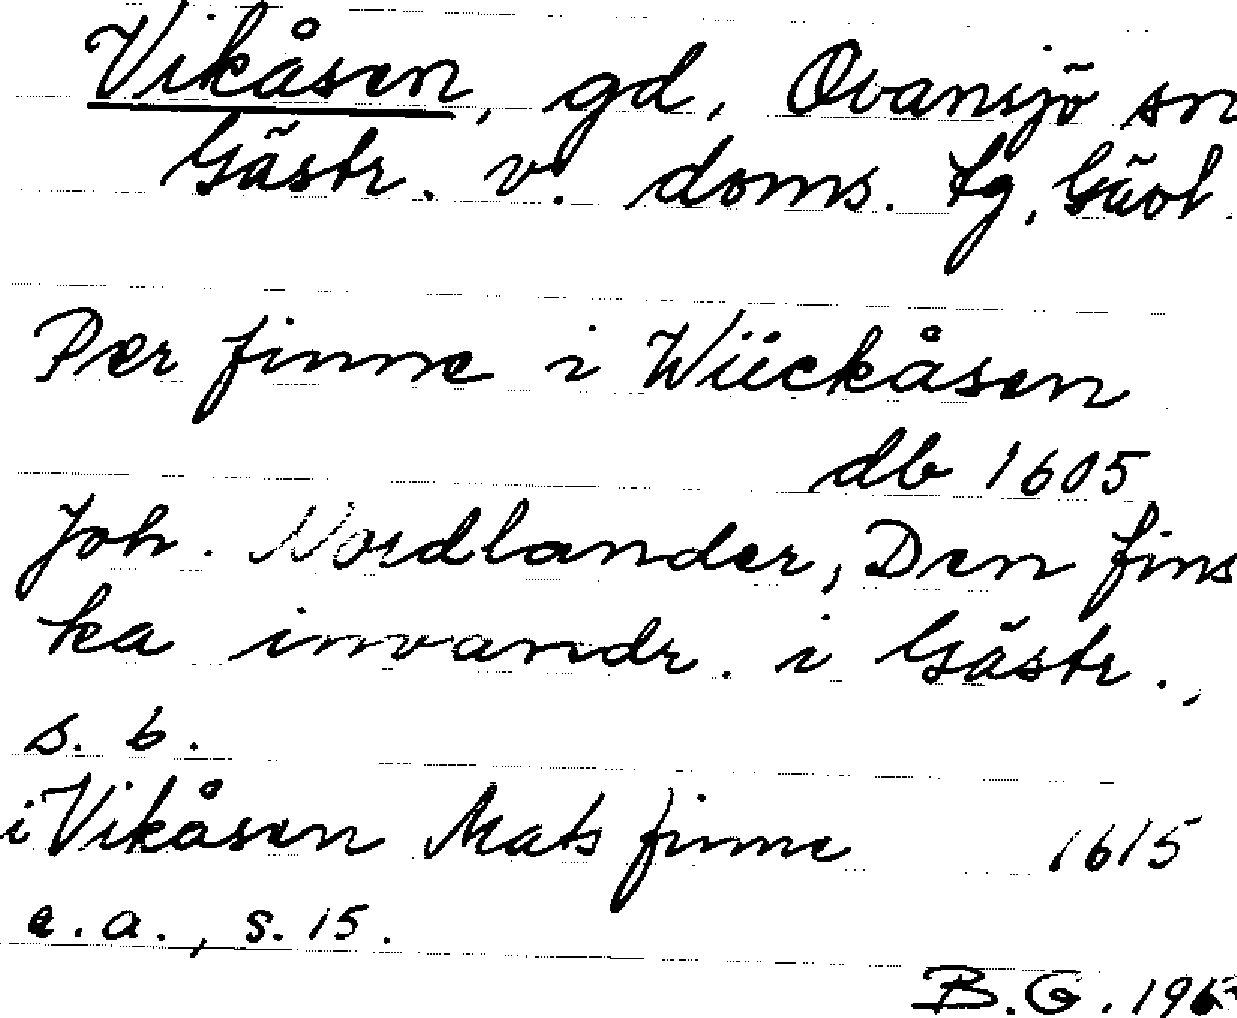 Vikåsen, gd, Ovansjö sn
Gästr. v. doms. tg, Gävl.
Per finne i Wiickåsen
db 1605
Joh. Nordlander, Den fins
ka invandr. i Gästr.,
s. 6.
i Vikåsen Mats finne 1615
a.a., s. 15.
B.G. 1963